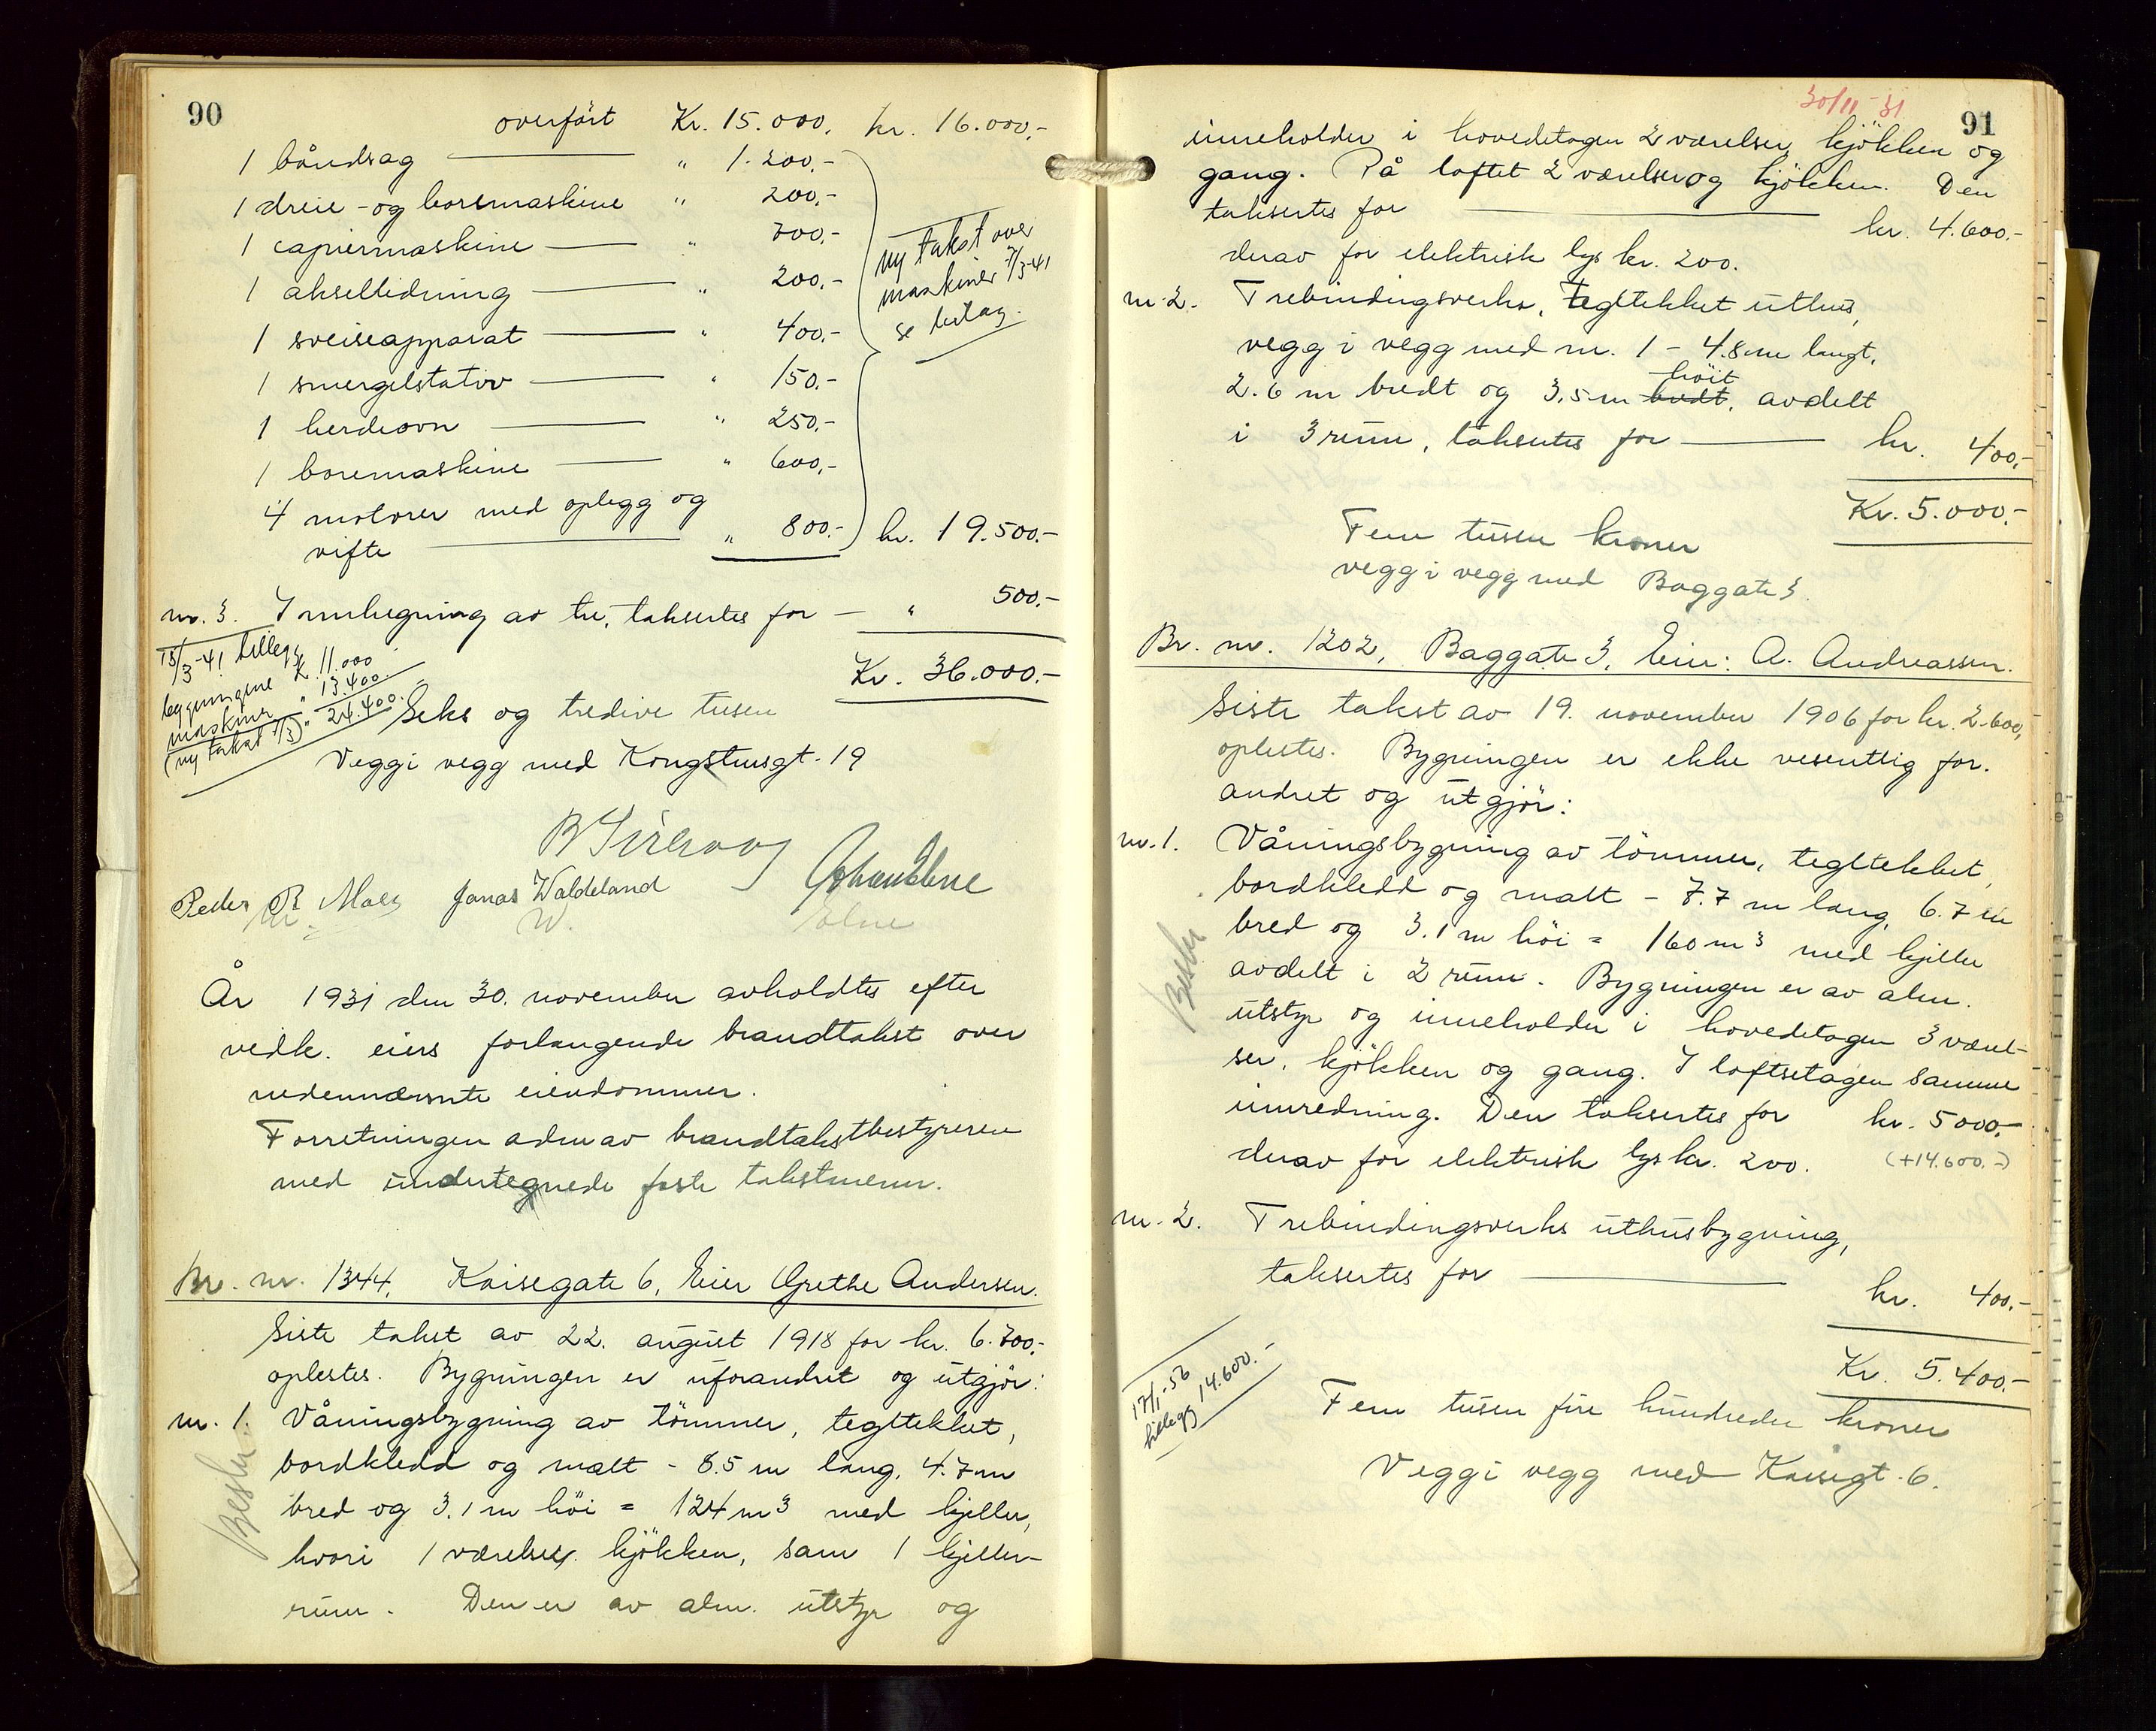 90
overført Kr. 15.000, kr. 16.000,-
1 båndsag " 1.200,-
1 dreie-og boremaskine " 200,-
1 capiermaskine " 700,-
1 aksellidning " 200,-
1 sveiseapparat " 400,-
1 smergelstativ " 150,-
1 herdeovn " 250,-
1 boremaskine " 600,-
4 motorer med oplegg og
vifte " 800,- kr. 19.500,-
ny takst over
maskiner 7/3-41
se bilag
nr. 3. Innhegning av tre, taksertes for " 500,-
Kr. 36.000,-
15/3-41 tillegg
bygningene K. 11.000
maskiner " 13.400
(ny takst 7/3) " 24.400.-
Seks og tredive tusen
Vegg i vegg med Kongstensgt. 19
Peder Jonas Waldeland
W.
År 1931 den 30. november avholdtes efter
vedk. eiers forlangende brandtakst over
nedennævnte eiendommer.
Forretningen adm av brandtakstbestyreren
med undertegnede faste takstmenn.
Br. nr. 1344, Kaisegate 6, Eier Grethe Andersen.
Siste takst av 22. august 1918 for kr. 6.700,-
oplestes. Bygningen er uforandret og utgjør:
nr. 1. Våningsbygning av tömmer, tegltekket,
bordkledd og malt - 8.5 m lang, 4.7 m
bred og 3.1 m höi = 124 m3 med kjeller,
hvori 1 værelse, kjökken, sam 1 kjeller-
rum. Den er av alm. utstyr og
30/11-31
91
inneholder i hovedetagen 2 værelser, kjökken og
gang. På loftet 2 værelser og kjökken. Den
taksertes for kr. 4.600,-
derav for elektrisk lys kr. 200.
nr. 2. Trebindingsverks, tegltekket uthus,
vegg i vegg med nr. 1 - 4.8 m langt,
höit
2.6 m bredt og 3.5 m bredt, avdelt
i 3 rum, taksertes for kr. 400,-
Kr. 5.000,-
Fem tusen kroner
vegg i vegg med Baggate 3.
Br. nr. 1202, Baggate 3, Eier: A. Andreassen.
Siste takst av 19. november 1906 for kr. 2.600,
oplestes. Bygningen er ikke vesentlig for-
andret og utgjör:
nr. 1. Våningsbygning av tömmer, tegltekket,
bordkledd og malt - 7.7 m lang, 6.7 m
bred og 3.1 m höi = 160 m3 med kjeller
avdelt i 2 rum. Bygningen er av alm.
utstyr og inneholder i hovedetagen 3 værel-
ser, kjökken og gang. I loftsetagen samme
innredning. Den taksertes for kr. 5000,-
derav for elektrisk lys kr. 200. (+14.600.-)
nr. 2. Trebindingsverks uthusbygning,
taksertes for kr. 400,-
Kr. 5.400,-
17/1-56
tillegg 14.600.-
Fem tusen fire hundrede kroner
Vegg i vegg med Kaisegt. 6.